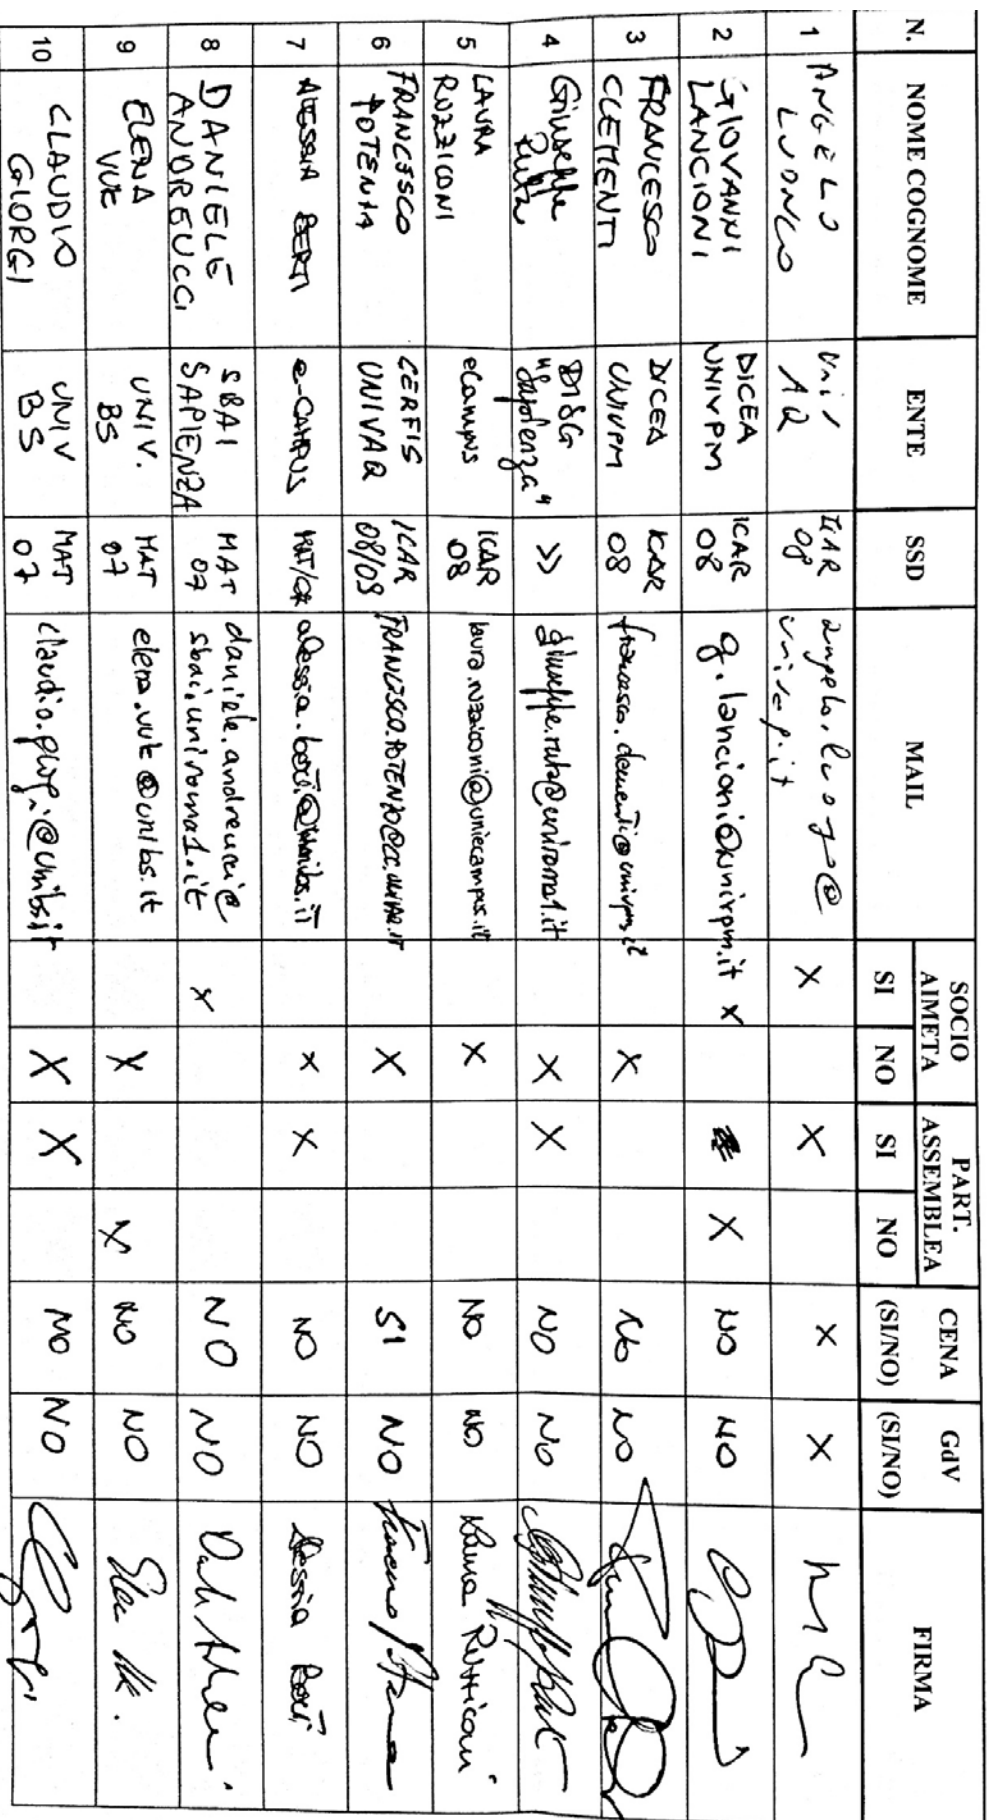 N. NOME COGNOME ENTE SSD MAIL SOCIO AIMETA PART. ASSEMBLEA CENA (SI/NO) GdV (SI/NO) FIRMA
SI NO SI NO
1 ANGELO LUONGO Univ AQ ICAR 08 angelo.luongo@ univaq.it X X X X
2 GIOVANNI LANCIONI DICEA UNIVPM ICAR 08 g.lancioni@univpm.it X X NO NO
3 FRANCESCO CLEMENTI DICEA UNIVPM ICAR 08 francesco.clementi@univpm.it X No No
4 Giuseppe Ruta DISG "Sapienza" >> giuseppe.ruta@uniroma1.it X X NO NO
5 LAURA RUZZICONI eCampus ICAR 08 laura.ruzziconi@uniecampus.it X NO NO Laura Ruzziconi
6 FRANCESCO POTENZA CERFIS UNIVAQ ICAR 08/09 X SI NO
7 ALESSIA BERTI e-CAMPUS MAT/07 alessia.berti@unibs.it X X NO NO Alessia Berti
8 DANIELE ANDREUCCI SBAI SAPIENZA MAT 07 daniele.andreucci@ sbai.uniroma1.it X NO NO
9 ELENA VUK UNIV. BS MAT 07 elena.vuk@unibs.it X X NO NO Elena Vuk.
10 CLAUDIO GIORGI UNIV BS MAT 07 claudio.giorgi@unibs.it X X NO NO